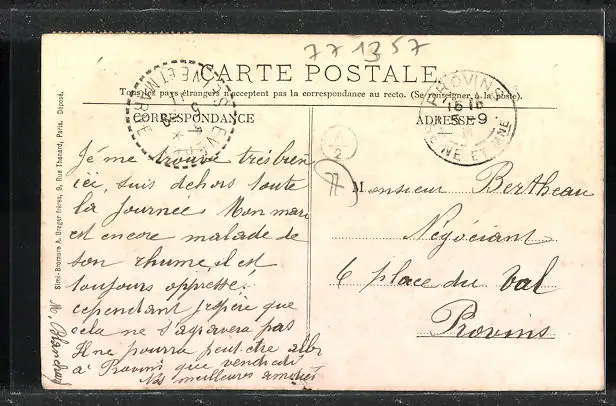 771357
CARTE POSTALE
Tous les pays étrangers n'acceptent pas la correspondance au recto. (Se renseigner à la poste).
CORRESPONDANCE
ADRESSE
PROVINS
15 15
5-9
SEINE ET MNE
SEINE ET MARNE
77
Je me trouve très bien
ici, suis dehors toute
la journée. Mon mari
est encore malade de
son rhume, il est
toujours oppressé.
cependant j'espère que
cela ne s'agravera pas
Il ne pourra peut-être aller
à Provins que vendredi
Nos meilleures amitiés
Monsieur Bertheau
Négociant
6 place du Val
Provins
Simi-Bromure A. Breger frères, 9, Rue Thénard, Paris. Déposé.